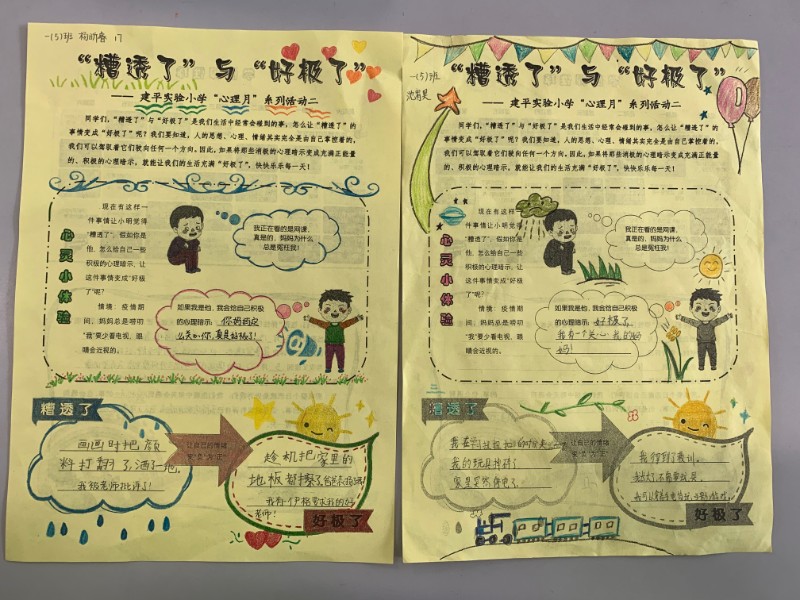 一(5)班
17
“糟透了”与“好极了”
—— 建平实验小学“心理月”系列活动二
同学们,“糟透了”与“好极了”是我们生活中经常会碰到的事,怎么让“糟透了”的
事情变成“好极了”呢?我们要知道,人的思想、心理、情绪其实完全是由自己掌控着的,
我们可以驾驭着它们驶向任何一个方向。因此,如果将那些消极的心理暗示变成充满正能量
的、积极的心理暗示,就能让我们的生活充满“好极了”,快快乐乐每一天!
心灵小体验
现在有这样一
件事情让小明觉得
“糟透了”,假如你是
他,怎么给自己一些
积极的心理暗示,让
这件事情变成“好极
了”呢?
情境:疫情期
间,妈妈总是唠叨
“我”要少看电视,眼
睛会近视的。
我正在看的是网课,
真是的,妈妈为什么
总是冤枉我!
如果我是他,我会给自己积极
的心理暗示:你妈妈这
么关心你,真是好极了!
糟透了
画画时把颜
料打翻了,洒了一地,
我被老师批评了!
让自己的情绪
“负”变“正”
趁机把家里的
地板都擦了,
好极了
一(5)班
“糟透了”与“好极了”
—— 建平实验小学“心理月”系列活动二
同学们,“糟透了”与“好极了”是我们生活中经常会碰到的事,怎么让“糟透了”的
事情变成“好极了”呢?我们要知道,人的思想、心理、情绪其实完全是由自己掌控着的,
我们可以驾驭着它们驶向任何一个方向。因此,如果将那些消极的心理暗示变成充满正能量
的、积极的心理暗示,就能让我们的生活充满“好极了”,快快乐乐每一天!
心灵小体验
现在有这样一
件事情让小明觉得
“糟透了”,假如你是
他,怎么给自己一些
积极的心理暗示,让
这件事情变成“好极
了”呢?
情境:疫情期
间,妈妈总是唠叨
“我”要少看电视,眼
睛会近视的。
我正在看的是网课,
真是的,妈妈为什么
总是冤枉我!
如果我是他,我会给自己积极
的心理暗示:好极了,
我有一个关心我的妈
妈!
糟透了
我的玩具摔碎了
家里突然停电了
让自己的情绪
“负”变“正”
我得到了教训,
好极了